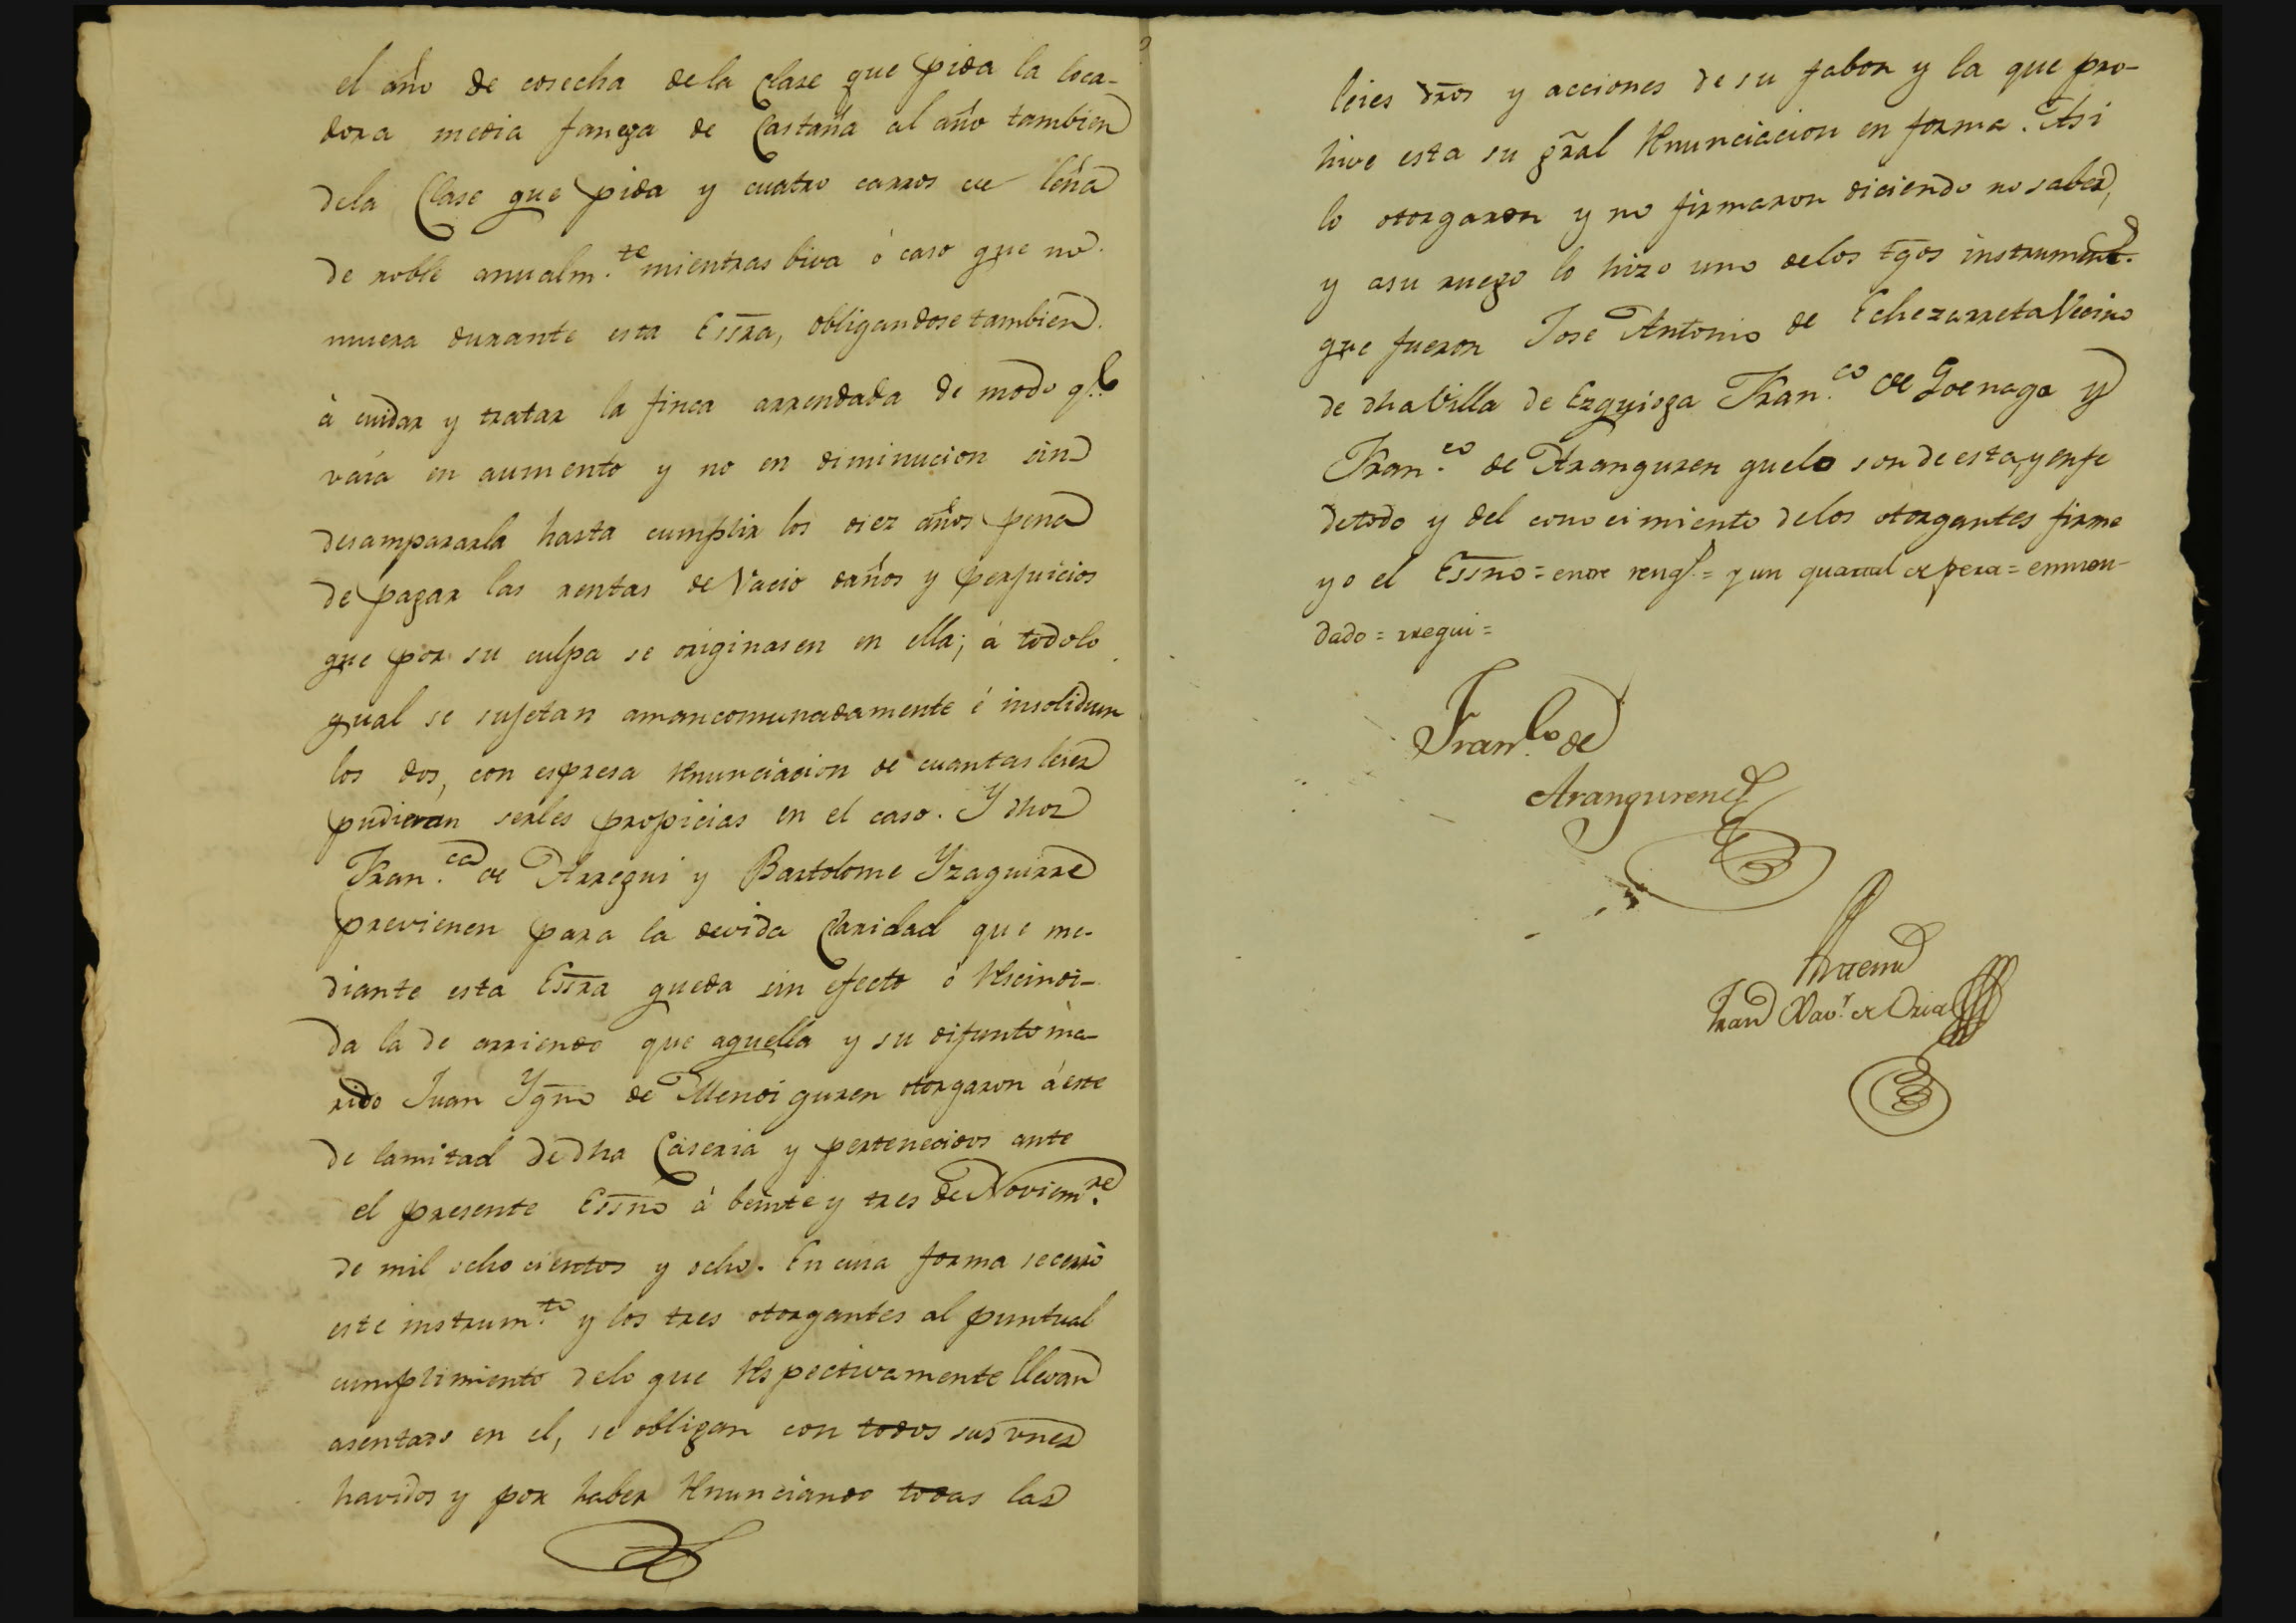 el año de cosecha dela Clase que pida la loca-
dora media fanega de Castaña al año tambien
dela Clase que pida y cuatro carros de leña
de roble anualm.te mientras biva ó caso que no
muera durante esta Essra, obligandose tambien
à cuidar y tratar la finca arrendada de modo q.e
vaia en aumento y no en diminucion sin
desampararla hasta cumplir los diez años pena
de pagar las rentas de Vacio daños y perjuicios
que por su culpa se originasen en ella; à todo lo
qual se sujetan amancomunadamente é insolidum
los dos, con espresa Renunciacion de cuantas leies
pudieran serles propicias en el caso. Y dhos
Fran.ca de Arregui y Bartolome Yzaguirre
previenen para la devida Claridad que me-
diante esta Essra queda sin efecto ó Rescindi-
da la de arriendo que aquella y su difunto ma-
rido Juan Ygno de Mendiguren otorgaron à este
de la mitad de dha Caseria y pertenecidos ante
el presente Essno à beinte y tres de Noviem.re
de mil ochocientos y ocho. En cuia forma se cerrò
este instrum.to y los tres otorgantes al puntual
cumplimiento delo que Respectivamente llevan
asentado en el, se obligan con todos sus vnes
havidos y por haber Renunciando todas las
leies dros y acciones de su fabor y la que pro-
hive esta su gral Renunciacion en forma. Asi
lo otorgaron y no firmaron diciendo no saber,
y asu ruego lo hizo uno delos tgos instrument.
que fueron Jose Antonio de Echezarreta Vecino
de dha Villa de Ezquioga Fran.co de Goenaga y
Fran.co de Aranguren quelo son de esta, y en fe
detodo y del conocimiento delos otorgantes firme
yo el Essno = entre rengl. = y un quartal de pera = enmen-
dado = rregui =
Fran.co de
Aranguren
Antemi
Fran Xav.r de Oria